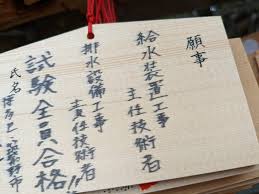 願事
給水装置工事
主任技術者
排水設備工事
責任技術者
試験全員合格!!
氏名